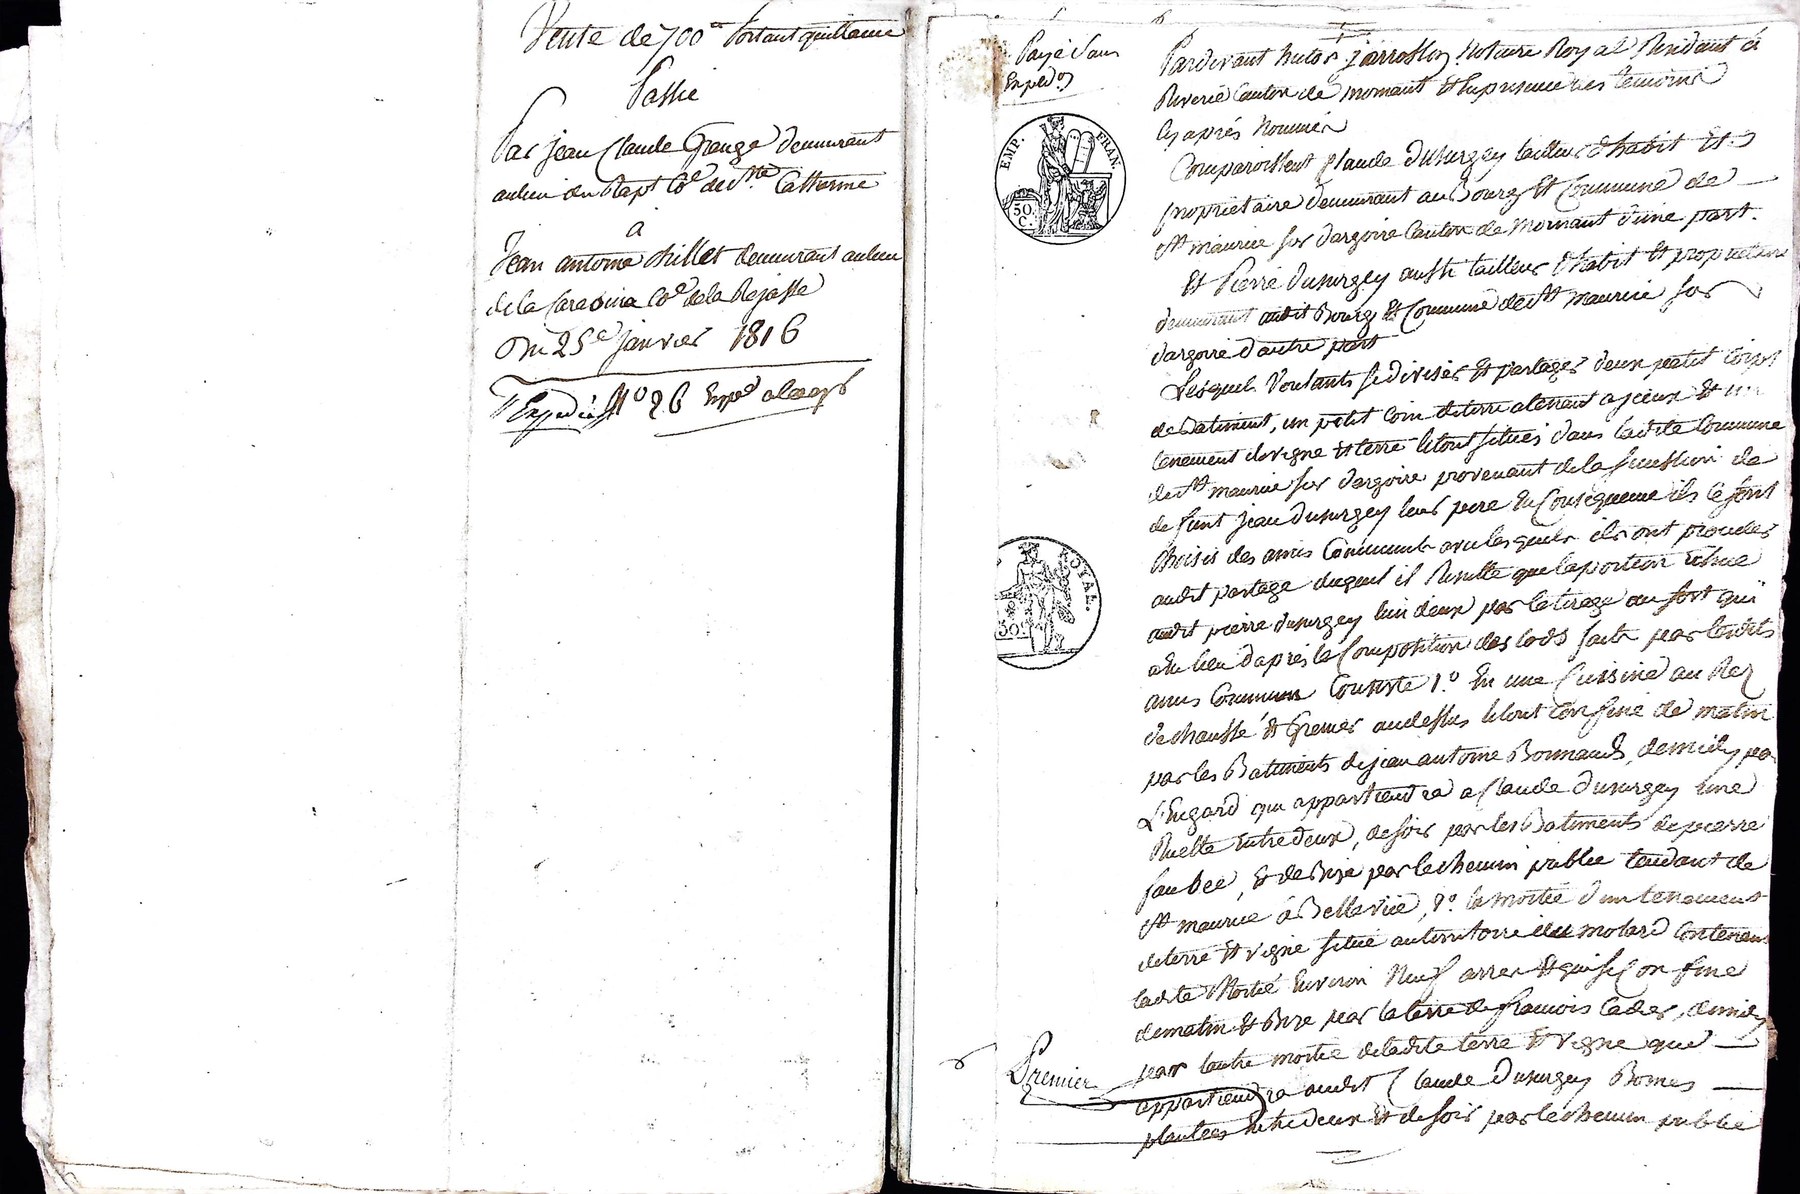 Vente de 700 fr portant quittance
Passée
Par jean Claude Grange demeurant
au lieu du Rapt Cne de Ste Catherine
a
Jean antoine chillet demeurant au lieu
de la Caredina Cne de la Rejasse
Du 25e janvier 1816
Expédiée N° 26
Payé Sans
Expédon
EMP. FRAN.
50. C.
ROYAL.
50c
Pardevant jarrosson Notaire Royal Residant à
Riverie Canton de mornant Et En presence des temoins
cy aprés Nommés
Comparoissent Claude dusurgey tailleur d'habit Et
propriétaire demeurant au Bourg Et Commune de
st maurice sur dargoire Canton de Mornant d'une part.
Et Pierre dusurgey aussi tailleur d'habit Et propriétaire
demeurant audit Bourg Et Commune de st maurice sur
dargoire d'autre part
Lesquels Voulants se diviser Et partager deux petit Corps
de Batiment, un petit Coin de terre atenant a jceux Et un
tenement de vigne Et terre le tout situés dans ladite Commune
de st maurice sur dargoire provenant de la succession de
defunt jean dusurgey leur pere En Conséquence ils se sont
choisis des amis Communs avec lesquels ils ont procedés
audit partage duquel il Resulte que la portion Echue
audit pierre dusurgey l'un deux par le tirage au sort qui
a Eu lieu d'après la Composition des lods faite par lesdits
amis Commun Consiste 1.° En une Cuisine au Rez
dechaussé Et Grenier audessus le tout Confiné de matin
par les Batiments de jean antoine Bonnand, de midy par
L'Engard qui appartiendra a Claude Dusurgey une
Ruelle Entre deux, de soir par les Batiments de pierre
jaubee, Et de Bize par le chemin public tendant de
st maurice à Bellevüe, 2.° la moitié d'un tenement
de terre Et vigne situé au territoire du molard Contenant
ladite Moitié Environ Neuf arres Et qui se Confine
de matin Et Bize par la terre de françois Cader, de midy
par l'autre moitié de ladite terre Et vigne que
appartiendra audit Claude Dusurgey Bornes
plantées Entre deux Et de soir par le chemin public
Premier